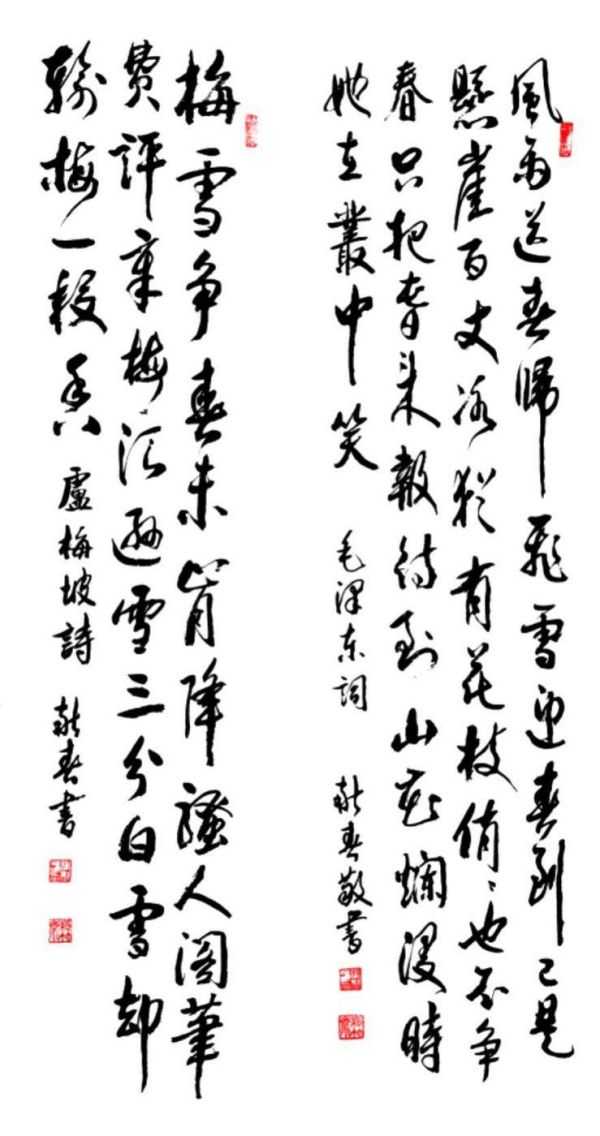 風雨送春歸飛雪迎春到已是
懸崖百丈冰犹有花枝俏、也不争
春只把春来報待到山花爛漫時
她在叢中笑
毛泽东詞
献春敬書
梅雪争春未肯降騷人阁筆
費評章梅須遜雪三分白雪却
輸梅一段香
盧梅坡詩
献春書